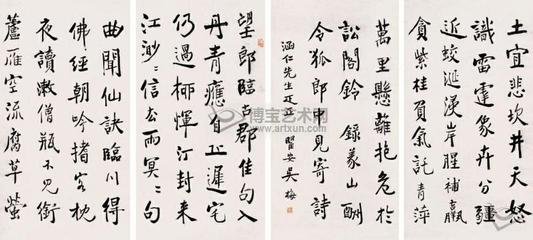 望郎臨古郡佳句入
丹青應自丘遲宅
仍過柳惲汀封來
江渺〻信去雨冥〻句
曲聞仙訣臨川得
佛經朝吟搘客枕
夜讀漱僧瓶不見銜
蘆雁空流腐草螢
土宜悲坎井天怒
識雷霆象卉分疆
近蛟涎浸岸腥補羸
貪紫桂負氣託青萍
萬里懸離抱危於
訟閣鈴 錄義山酬
令狐郎中見寄詩
涵仁先生疋正 瞿安吳梅
博宝艺术网
www.artxun.com